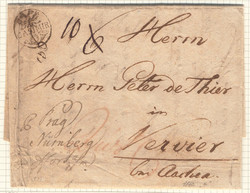 10 6 Herrn
Herrn Peter de Thier
in
Vervier
bei Aachen
Prag
Nürnberg